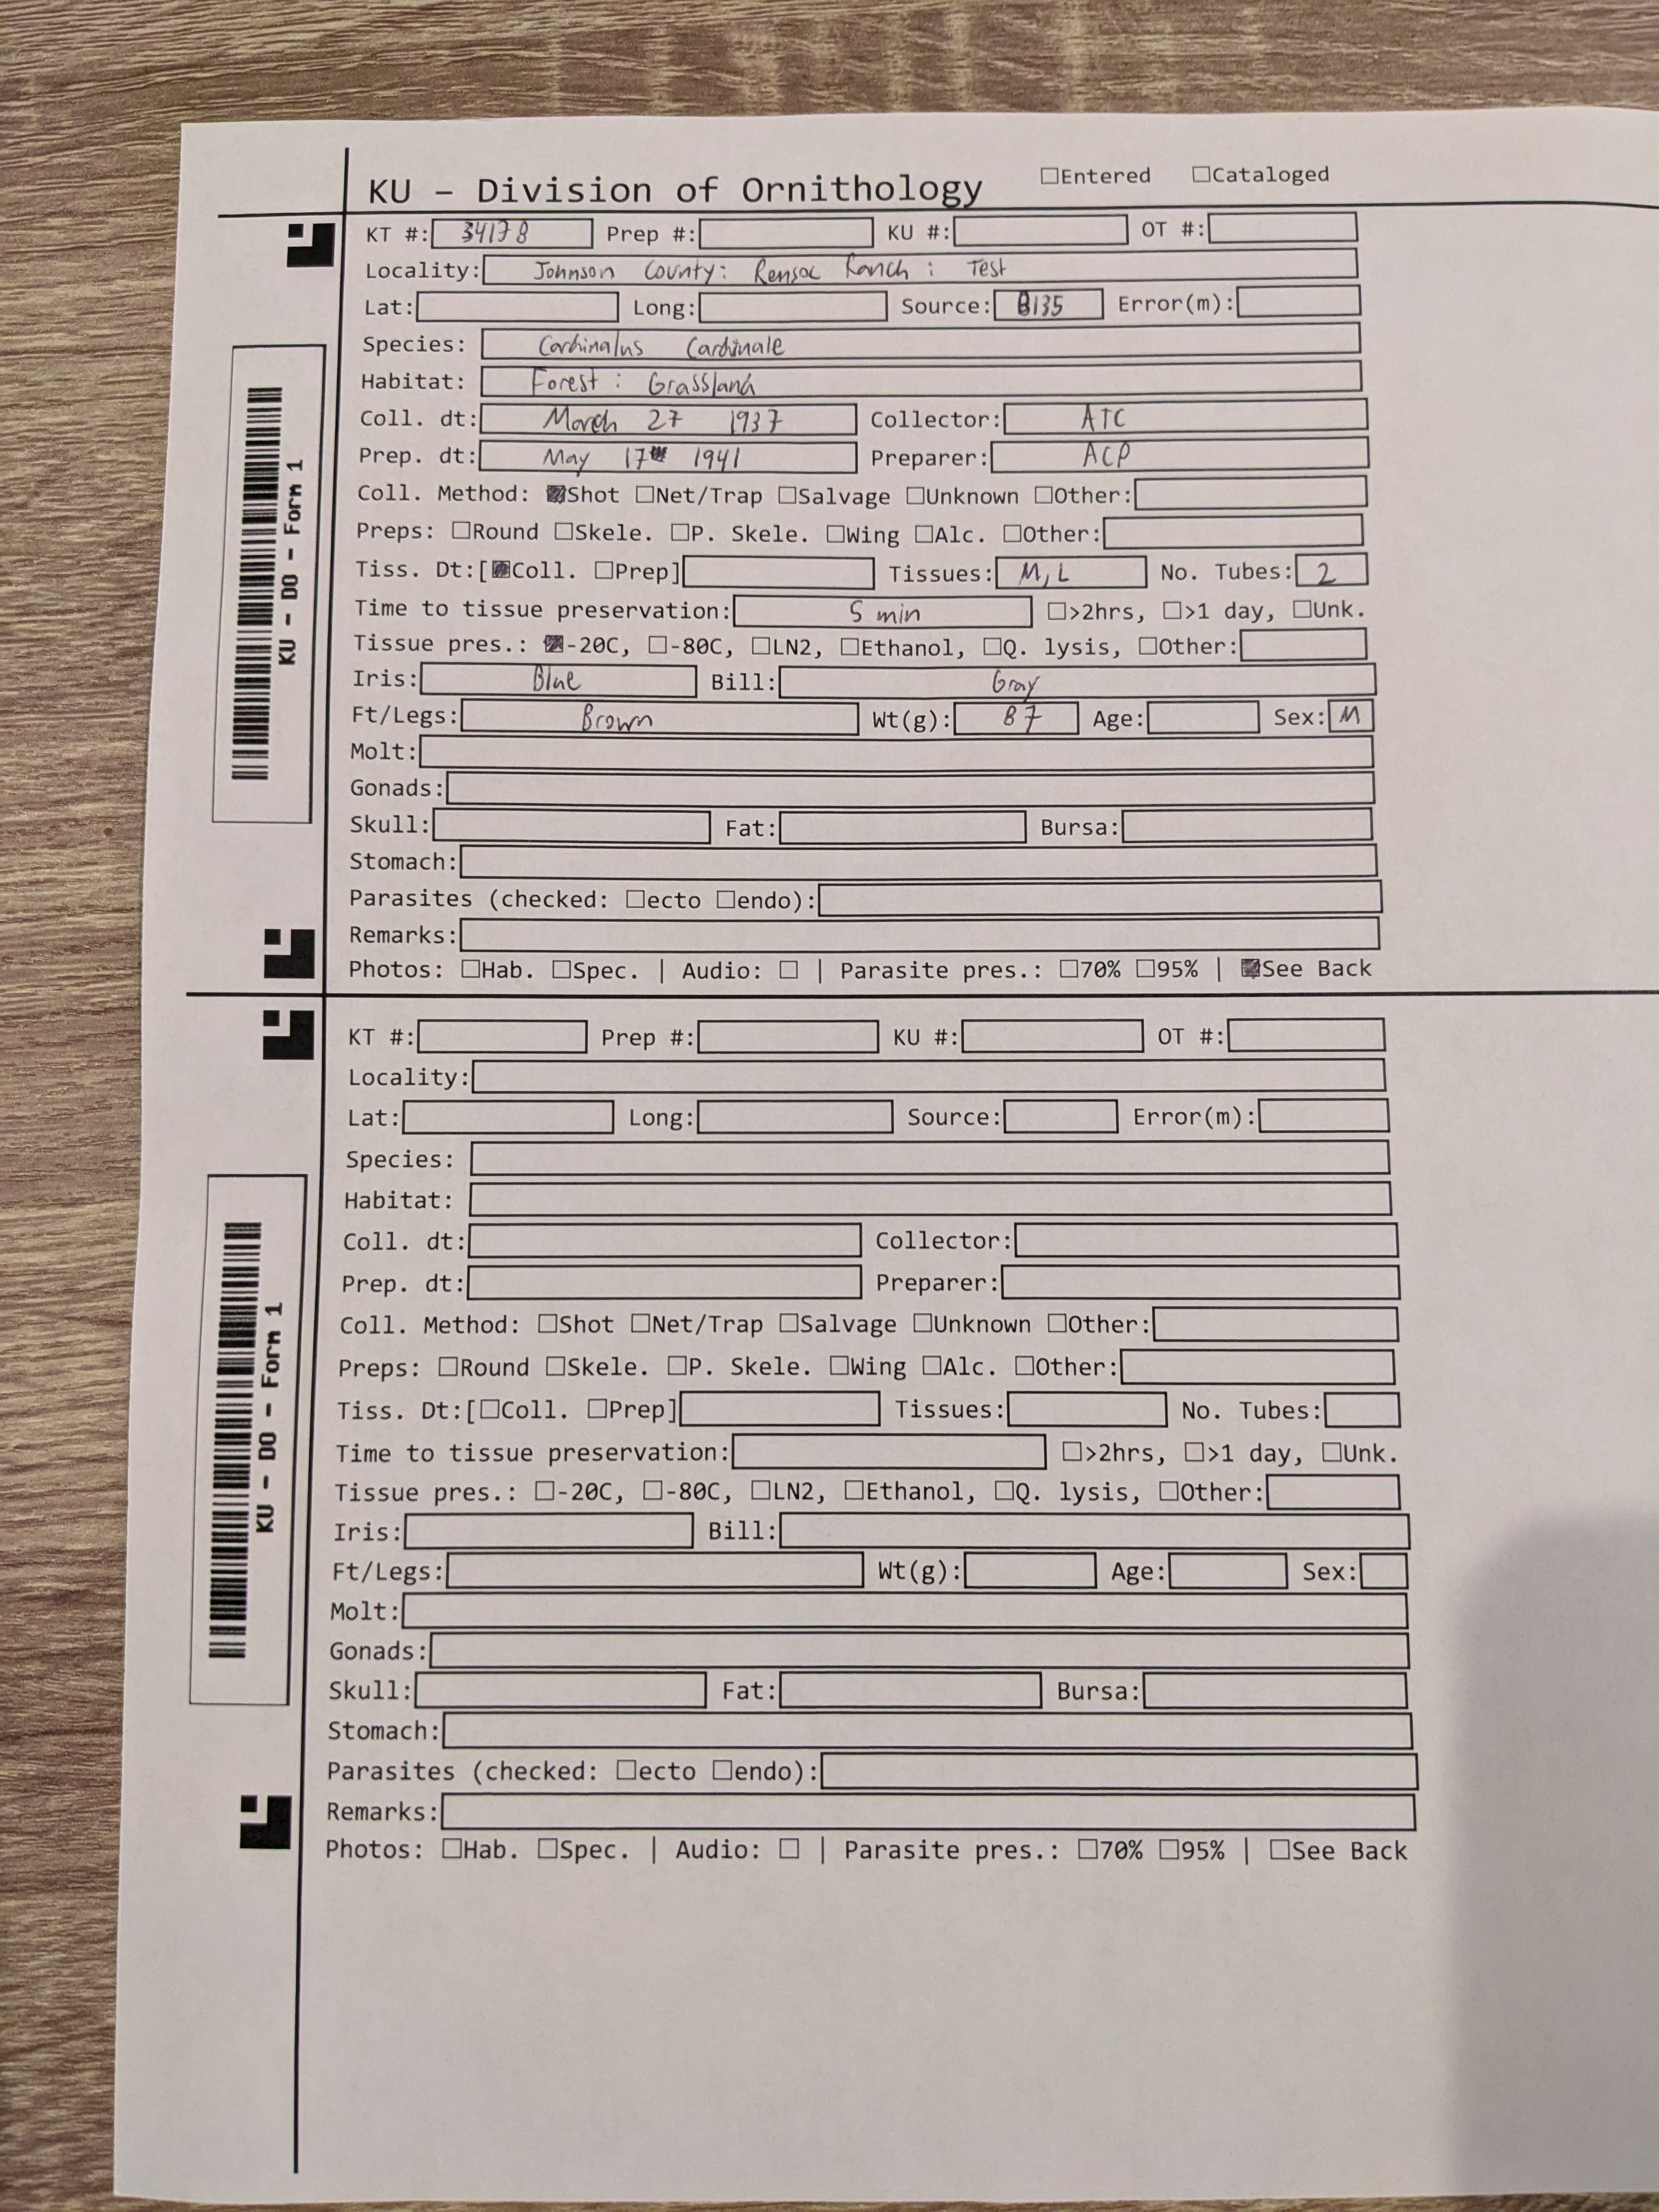 KU – Division of Ornithology ☐Entered ☐Cataloged
KT #: 34178 Prep #: KU #: OT #:
Locality: Johnson County: Ranch : Test
Lat: Long: Source: B135 Error(m):
Species: Cardinalus Cardinale
Habitat: Forest : Grassland
Coll. dt: March 27 1937 Collector: ATC
Prep. dt: May 17 1941 Preparer: ACP
Coll. Method: ☒Shot ☐Net/Trap ☐Salvage ☐Unknown ☐Other:
Preps: ☐Round ☐Skele. ☐P. Skele. ☐Wing ☐Alc. ☐Other:
Tiss. Dt:[☒Coll. ☐Prep] Tissues: M,L No. Tubes: 2
Time to tissue preservation: 5 min ☐>2hrs, ☐>1 day, ☐Unk.
Tissue pres.: ☒-20C, ☐-80C, ☐LN2, ☐Ethanol, ☐Q. lysis, ☐Other:
Iris: Blue Bill: Gray
Ft/Legs: Brown Wt(g): 87 Age: Sex: M
Molt:
Gonads:
Skull: Fat: Bursa:
Stomach:
Parasites (checked: ☐ecto ☐endo):
Remarks:
Photos: ☐Hab. ☐Spec. | Audio: ☐ | Parasite pres.: ☐70% ☐95% | ☒See Back
KU - DO - Form 1
KT #: Prep #: KU #: OT #:
Locality:
Lat: Long: Source: Error(m):
Species:
Habitat:
Coll. dt: Collector:
Prep. dt: Preparer:
Coll. Method: ☐Shot ☐Net/Trap ☐Salvage ☐Unknown ☐Other:
Preps: ☐Round ☐Skele. ☐P. Skele. ☐Wing ☐Alc. ☐Other:
Tiss. Dt:[☐Coll. ☐Prep] Tissues: No. Tubes:
Time to tissue preservation: ☐>2hrs, ☐>1 day, ☐Unk.
Tissue pres.: ☐-20C, ☐-80C, ☐LN2, ☐Ethanol, ☐Q. lysis, ☐Other:
Iris: Bill:
Ft/Legs: Wt(g): Age: Sex:
Molt:
Gonads:
Skull: Fat: Bursa:
Stomach:
Parasites (checked: ☐ecto ☐endo):
Remarks:
Photos: ☐Hab. ☐Spec. | Audio: ☐ | Parasite pres.: ☐70% ☐95% | ☐See Back
KU - DO - Form 1